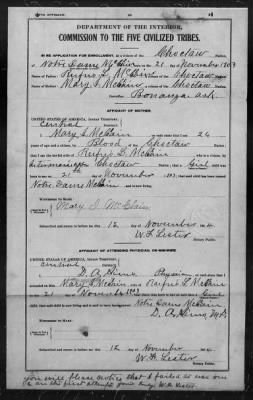 BIRTH AFFIDAVIT.
DEPARTMENT OF THE INTERIOR,
COMMISSION TO THE FIVE CIVILIZED TRIBES.
IN RE APPLICATION FOR ENROLLMENT, as a citizen of the Choctaw Nation,
of Notre Dame McClain, born on the 21 day of November, 1903
Name of Father: Rufus L McClain a citizen of the Choctaw Nation.
Name of Mother: Mary I. McClain a citizen of the Choctaw Nation.
Bonanza Ark
AFFIDAVIT OF MOTHER.
UNITED STATES OF AMERICA, INDIAN TERRITORY,
Central District.
I, Mary I. McClain, on oath state that I am 24
years of age and a citizen by Blood, of the Choctaw Nation;
that I am the lawful wife of Rufus L. McClain, who is a citizen, by
intermarriage of the Choctaw Nation; that a Girl child was
born to me on 21st day of November, 1903; that said child has been named
Notre Dame McClain, and is now living.
Mary I McClain
WITNESSES TO MARK:
Subscribed and sworn to before me this 12 day of November, 1904
W. F. Lester
Notary Public.
AFFIDAVIT OF ATTENDING PHYSICIAN, OR MIDWIFE.
UNITED STATES OF AMERICA, INDIAN TERRITORY,
Central District.
I, D. A., a Physician, on oath state that I
attended on Mrs. Mary I. McClain, wife of Rufus L McClain
on the 21 day of November, 1903; that there was born to her on said date a Girl
child; that said child is now living and is said to have been named Notre Dame McClain
D. A. M.D.
WITNESSES TO MARK:
Subscribed and sworn to before me this 12 day of November, 1904
W. F. Lester
Notary Public.
you will please notice that I failed as
the first attempt